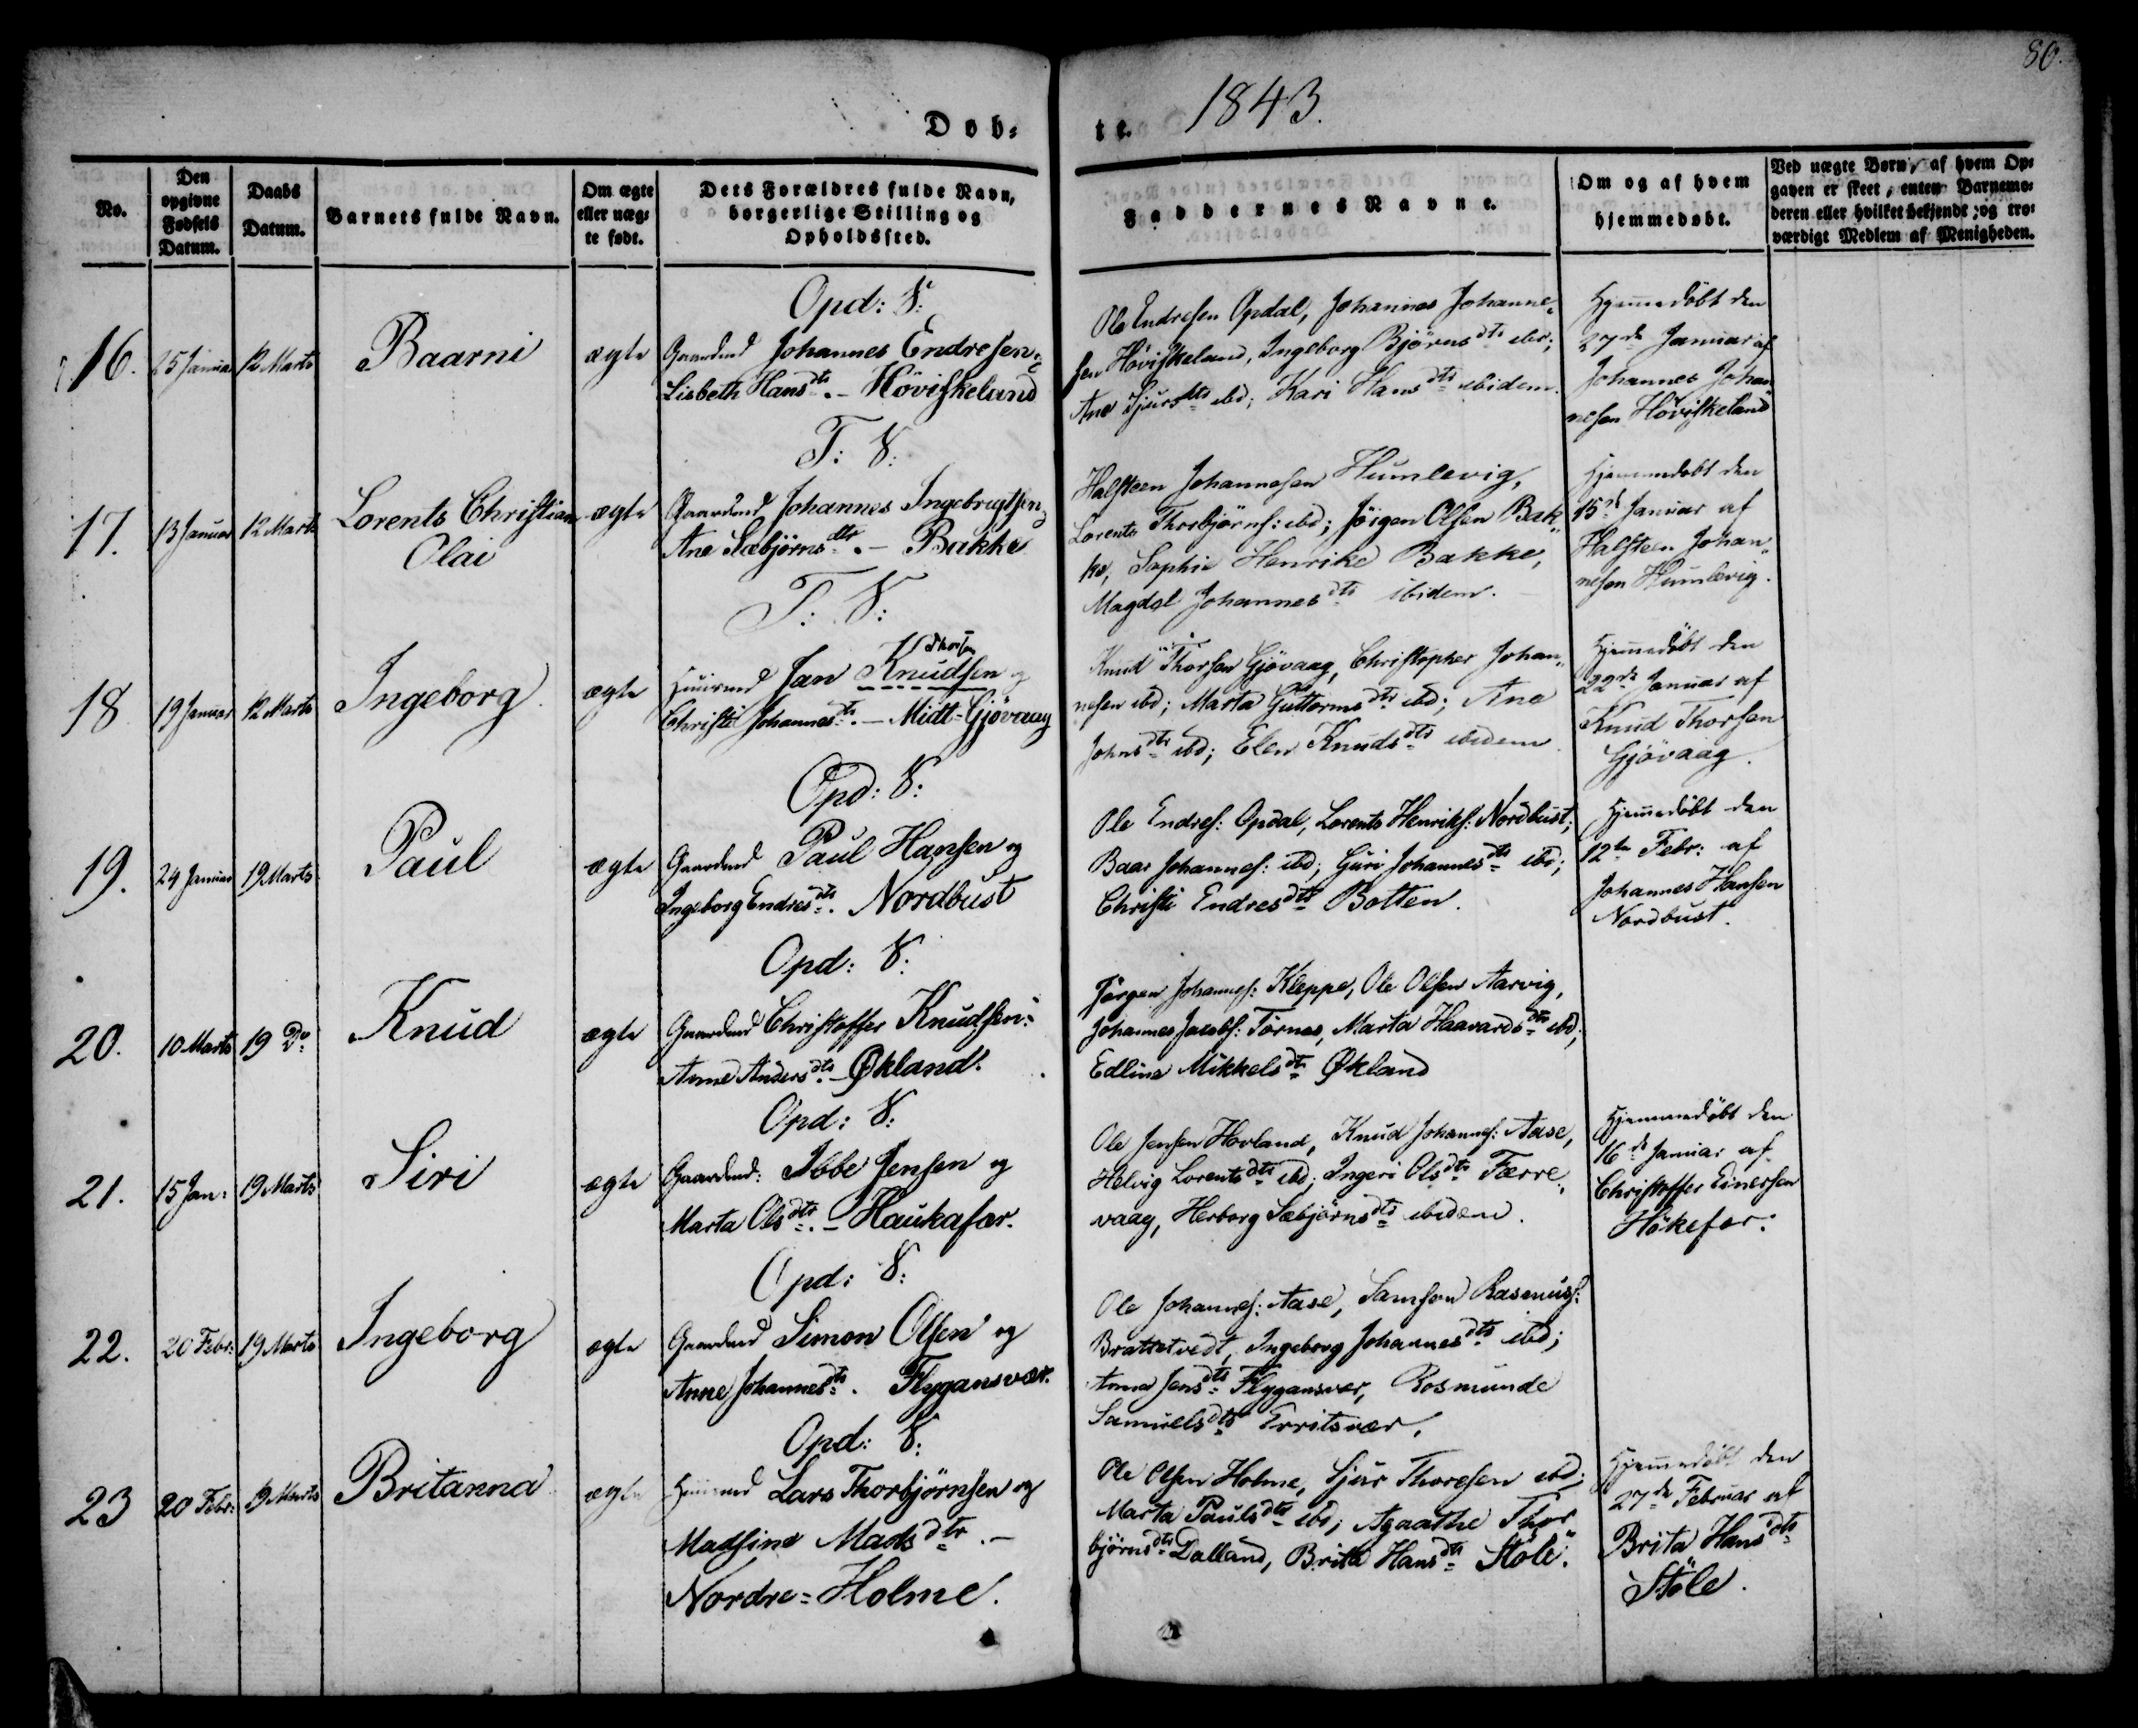 80.
1843.
Døb-
te.
No.
Den opgivne Fødsels Datum.
Daabs Datum.
Barnets fulde Navn.
Om ægte eller uægte født.
Dets Forældres fulde Navn, borgerlige Stilling og Opholdssted.
Faddernes Navne.
Om og af hvem hjemmedøbt.
Ved uægte Børn, af hvem Opgaven er skeet, enten Barnemoderen eller hvilket bekjendt og troværdigt Medlem af Menigheden.
Opd: V:
16. 25 Januar 12 Marts Baarni ægte
Gaardmd Johannes Endresen &
Lisbeth Hansdtr. – Höviskeland
Ole Endresen Opdal, Johannes Johanne„
sen Höviskeland, Ingeborg Björnsdtr ibd;
Ane Sjursdtr ibd; Kari Hansdtr ibidem.
Hjemmedöbt den
27de Januar af
Johannes Johan„
nesen Höviskeland
T: V:
17. 13 Januar 12 Marts Lorents Christian
Olai
ægte
Gaardmd Johannes Ingebrigtsen,
Ane Sæbjörnsdtr. – Bakke
Halsteen Johannesen Humlevig,
Lorents Thorbjörns: ibd; Jörgen Olsen Bak„
ke, Sophie Henrike Bakke,
Magdel Johannesdtr ibidem.
Hjemmedöbt den
15de Januar af
Halsteen Johan„
nesen Humlevig.
T: V:
18 19 Januar 12 Marts Ingeborg. ægte
Thorsen
Huusmd Jan Knudsen og
Christi Johannesdtr. – Midt-Gjövaag
Knud Thorsen Gjövaag, Christopher Johan„
nesen ibd; Marta Guttormsdtr ibd; Ane
Johnsdtr ibd; Elen Knudsdtr ibidem.
Hjemmedöbt den
22de Januar af
Knud Thorsen
Gjövaag.
Opd: V:
19. 24 Januar 19 Marts Paul ægte
Gaardmd Paul Hansen og
Ingeborg Endresdtr. Nordbust
Ole Endres: Opdal, Lorents Henriks: Nordbust;
Baar Johannes: ibd; Guri Johannesdtr ibd;
Christi Endresdtr Botten.
Hjemmedöbt den
12te Febr: af
Johannes Hansen
Nordbust.
Opd: V:
20. 10 Marts 19 Do: Knud ægte
Gaardmd Christoffer Knudsen:
Anne Andersdtr. – Økland.
Jörgen Johannes: Kleppe, Ole Olsen Aarvig,
Johannes Jacobs: Tornes, Marta Haavardsdtr ibd;
Edline Mikkelsdtr Økland
Opd: V:
21. 15 Jan: 19 Marts Siri ægte
Gaardmd: Ibbe Jensen og
Marta Olsdtr. – Haukafær.
Ole Jensen Hovland, Knud Johannes: Aase,
Helvig Lorentsdtr ibd; Ingeri Olsdtr Færre„
vaag, Herborg Sæbjörnsdtr ibidem.
Hjemmedöbt den
16de Januar af
Christoffer Einersen
Hökefær.
Opd: V:
22. 20 Febr: 19 Marts Ingeborg ægte
Gaardmd Simon Olsen og
Anne Johannesdtr. Flygansvær.
Ole Johannes: Aase, Samson Rasmus:
Brattetvedt, Ingeborg Johannesdtr ibd;
Anna Jensdtr Flygansvær, Rosmunde
Samuelsdtr Erritsvær.
Opd: V:
23 20 Febr: 19 Marts Britanna. ægte
Huusmd Lars Thorbjörnsen og
Madsine Madsdtr. –
Nordre-Holme.
Ole Olsen Holme, Sjur Thoresen ibd;
Marta Paulsdtr ibd; Agaathe Thor
björnsdtr Dalland, Brita Hansdtr Stöle.
Hjemmedöbt den
27de Februar af
Brita Hansdtr
Stöle.